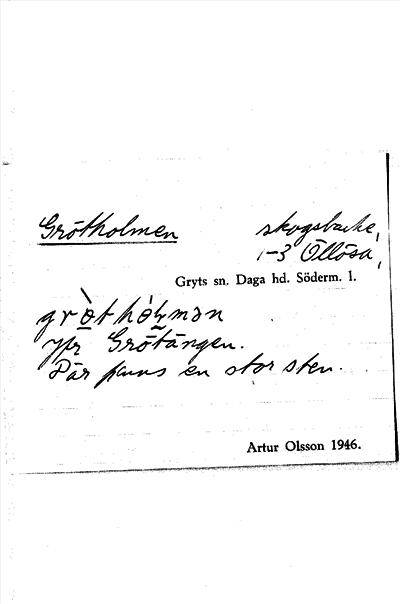 Grötholmen skogsbacke,
1-3 Öllösa,
Gryts sn. Daga hd. Söderm. l.
grö̀thól̥mən
Grötängen.
Där finns en stor sten.
Artur Olsson 1946.